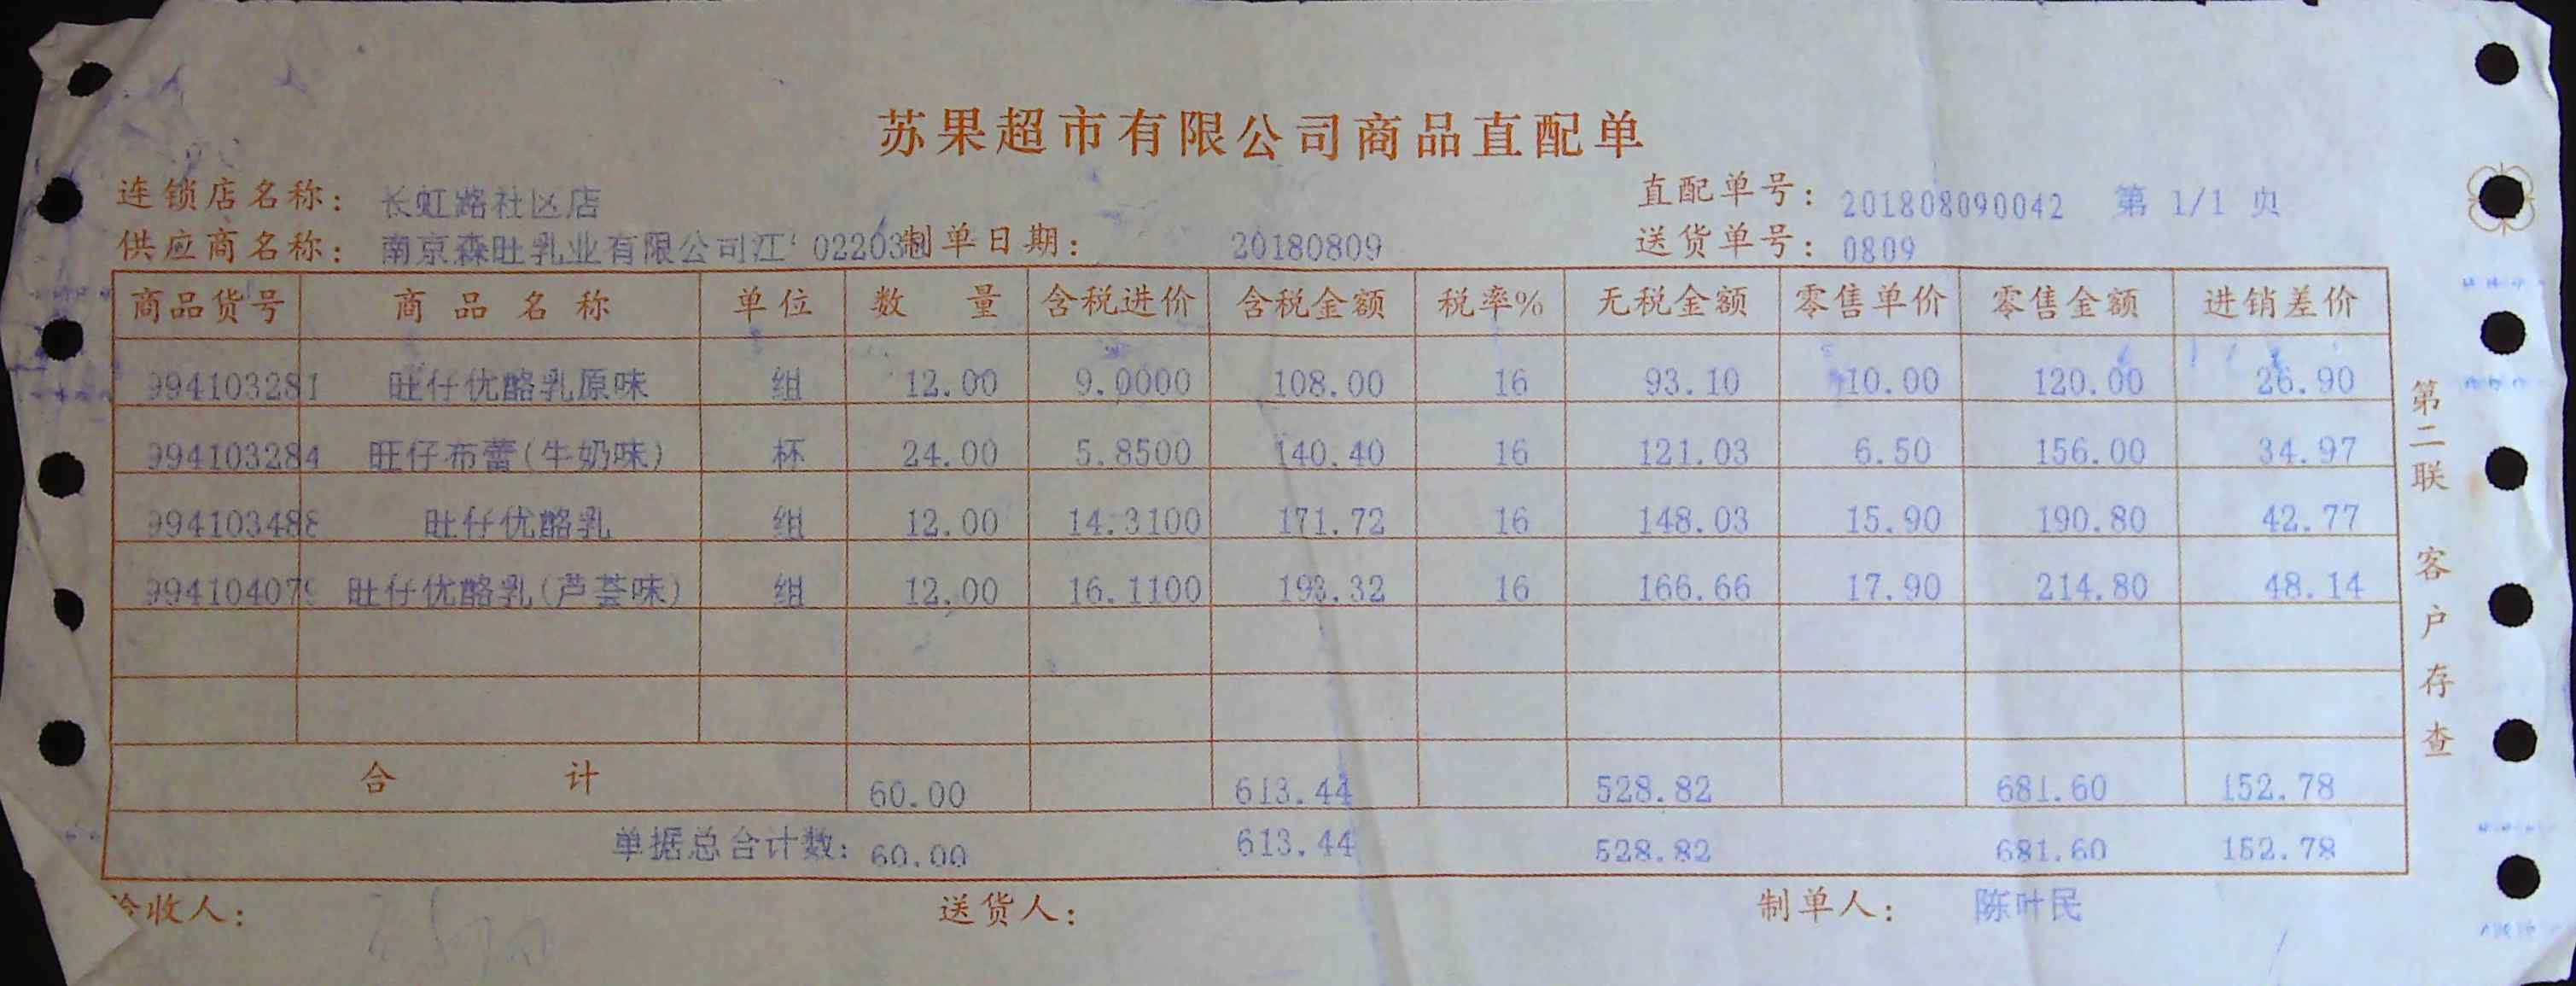 苏果超市有限公司商品直配单
连锁店名称： 长虹路社区店 直配单号：201808090042 第 1/1 页
供应商名称： 南京森旺乳业有限公司江 02203 制单日期： 20180809 送货单号：0809
商品货号 商品名称 单位 数量 含税进价 含税金额 税率% 无税金额 零售单价 零售金额 进销差价
994103281 旺仔优酪乳原味 组 12.00 9.0000 108.00 16 93.10 10.00 120.00 26.90
994103284 旺仔布蕾(牛奶味) 杯 24.00 5.8500 140.40 16 121.03 6.50 156.00 34.97
994103488 旺仔优酪乳 组 12.00 14.3100 171.72 16 148.03 15.90 190.80 42.77
994104079 旺仔优酪乳(芦荟味) 组 12.00 16.1100 193.32 16 166.66 17.90 214.80 48.14
合计 60.00 613.44 528.82 681.60 152.78
单据总合计数: 60.00 613.44 528.82 681.60 152.78
验收人： 送货人： 制单人： 陈叶民
第二联 客户存查